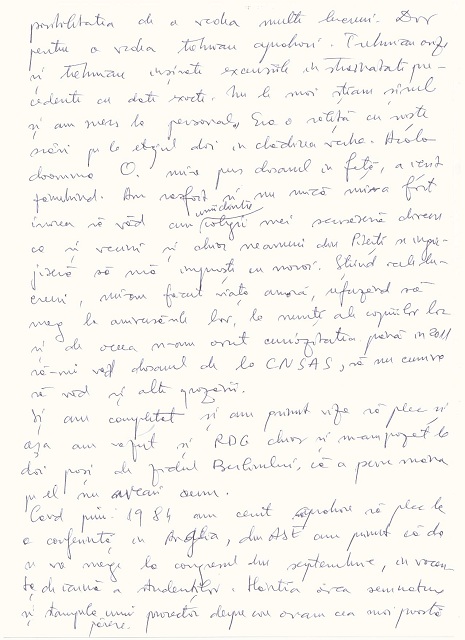 posibilitatea de a vedea multe lucruri. Dar
pentru a vedea trebuiau aprobări. Trebuiau
și trebuiau înșirate excursiile în străinătate pre-
cedente cu date exacte. Nu le mai știam șirul
și am mers la personal. Era o
scări pe la etajul doi în clădirea veche. Acolo
doamna O. mi-a pus dosarul în față, a venit
Am și nu mică mi-a fost
să văd cum colegii unii dintre mei
ca și vecinii și chiar neamuri din Pitești se
să mă în noroi. Știind
mi-am făcut viața amară, refuzând să
merg la aniversările lor, la nunți ale copiilor lor
și de aceea n-am avut curiozitatea până în 2011
să-mi văd dosarul de la CNSAS, să nu cumva
să văd și alte grozăvii.
Și am completat și am primit vize să plec și
așa am văzut și RDG chiar și m-am pozat la
doi pași de zidul Berlinului, că a pune mâna
pe el nu aveai cum.
Când prin 1984 am cerut aprobare să plec la
o conferință în Anglia, din ASE am primit că da
a merge la congresul din septembrie, în vacan-
ța de iarnă a studenților. Hârtia avea semnătura
și ștampila unui prorector despre care aveam cea mai proastă
părere.